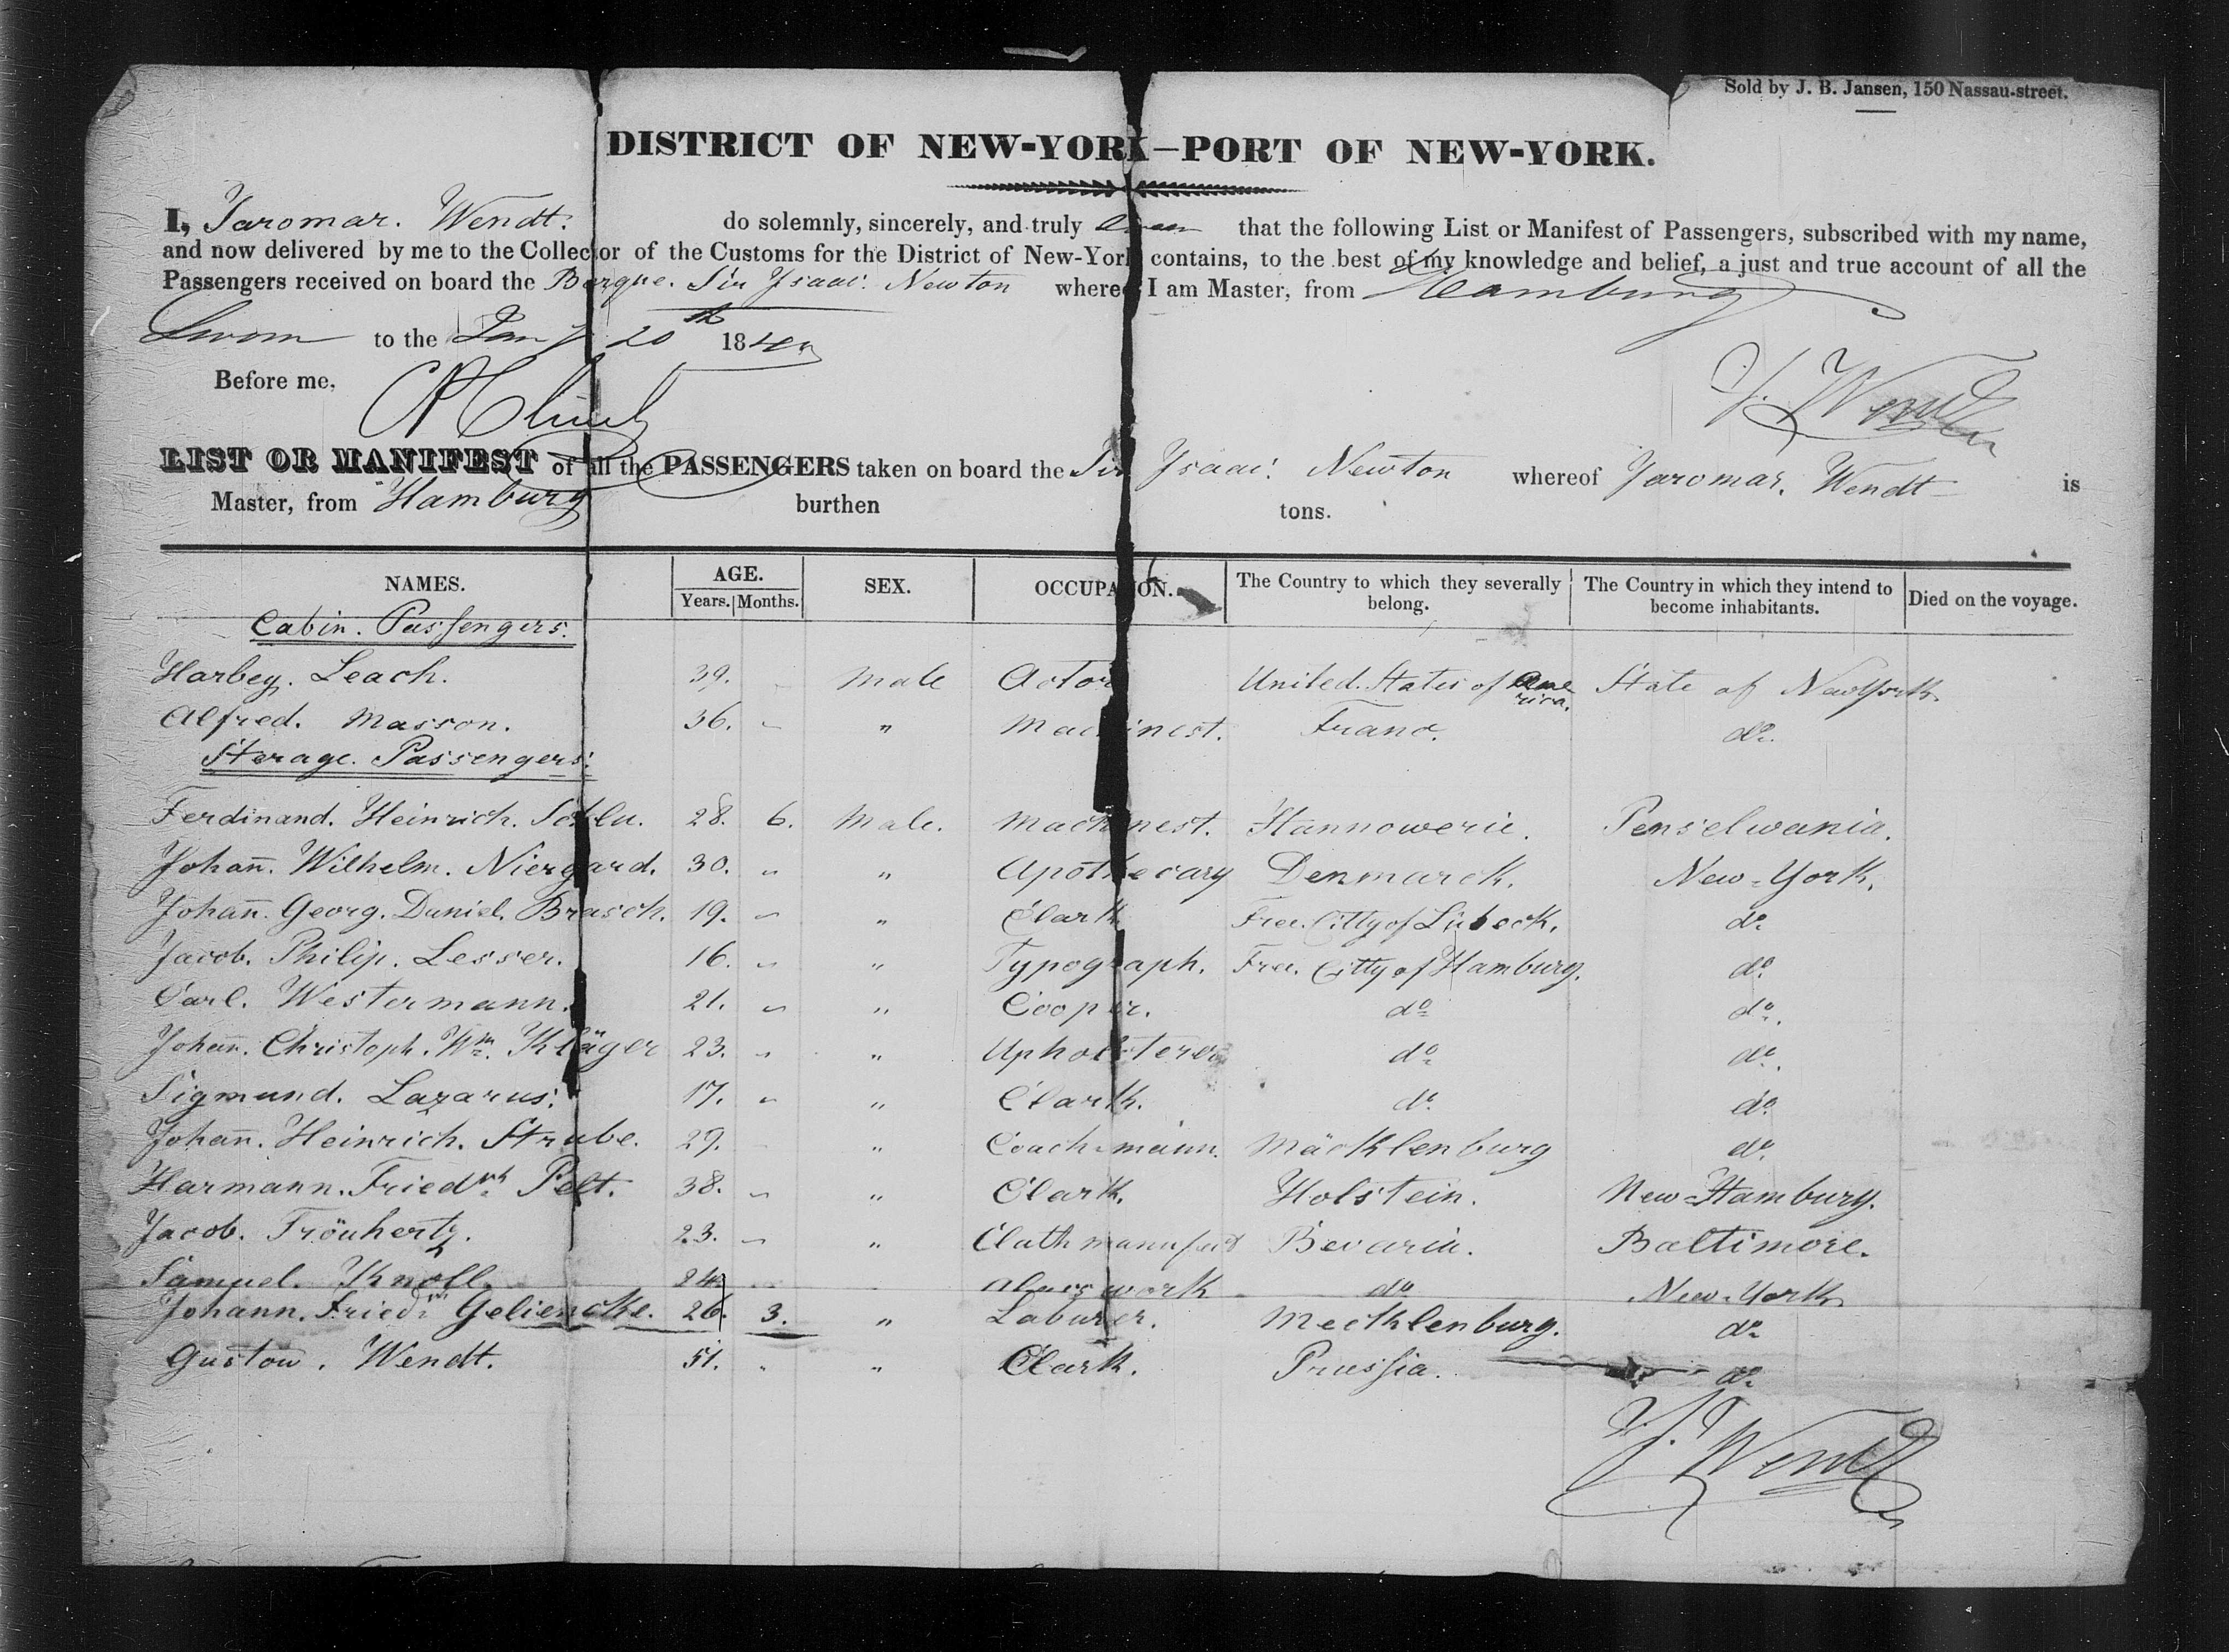 Sold by J. B. Jansen, 150 Nassau-street.
DISTRICT OF NEW-YORK—PORT OF NEW-YORK.
I, Jaromar. Wendt. do solemnly, sincerely, and truly that the following List or Manifest of Passengers, subscribed with my name,
and now delivered by me to the Collector of the Customs for the District of New-York contains, to the best of my knowledge and belief, a just and true account of all the
Passengers received on board the Barque. Sir Ysaac. Newton whereof I am Master, from Hamburg
Sworn to the Jany 20th 184
Before me,
J. Wendt
LIST OR MANIFEST of all the PASSENGERS taken on board the Sir Ysaac. Newton whereof Jaromar. Wendt is
Master, from Hamburg burthen tons.
NAMES. AGE. Years. Months. SEX. OCCUPATION. The Country to which they severally belong. The Country in which they intend to become inhabitants. Died on the voyage.
Cabin. Passengers.
Harbey. Leach. 39. Male Actor United. States of America. State of NewYork.
Alfred. Masson. 36. " " Machinest. Franc. do.
Sterage. Passengers.
Ferdinand. Heinrich. 28. 6. Male. Machinest. Hannowerie. Penselwania.
Johann. Wilhelm. Niergard. 30. " " Apothecary Denmarck. New-York.
Johann. Georg. Daniel. Brasch. 19. " " Clark Free. Citty of Lübeck. do
Jacob. Philip. Lesser. 16. " " Typograph. Free. Citty of Hamburg. do.
Carl. Westermann. 21. " " Cooper. do do.
Johann. Christoph. Wm. Kläger 23. " " Upholsterer do do.
Sigmund. Lazarus. 17. " " Clark. do. do.
Johann. Heinrich. Strube. 29. " Coach-mann. Mäcklenburg do.
Harmann. Friedrh. Pelt. 38. " " Clark. Holstein. New-Hamburg.
Jacob. Fröuhertz. 23. " " Clath manufact Bevaria. Baltimore.
Samuel. Knoll. 24. work do New-York
Johann. Friedr. Geliencke. 26. 3. " Laburer. Mecklenburg. do
Gustow. Wendt. 51. " " Clark. Prussia. do
J. Wendt